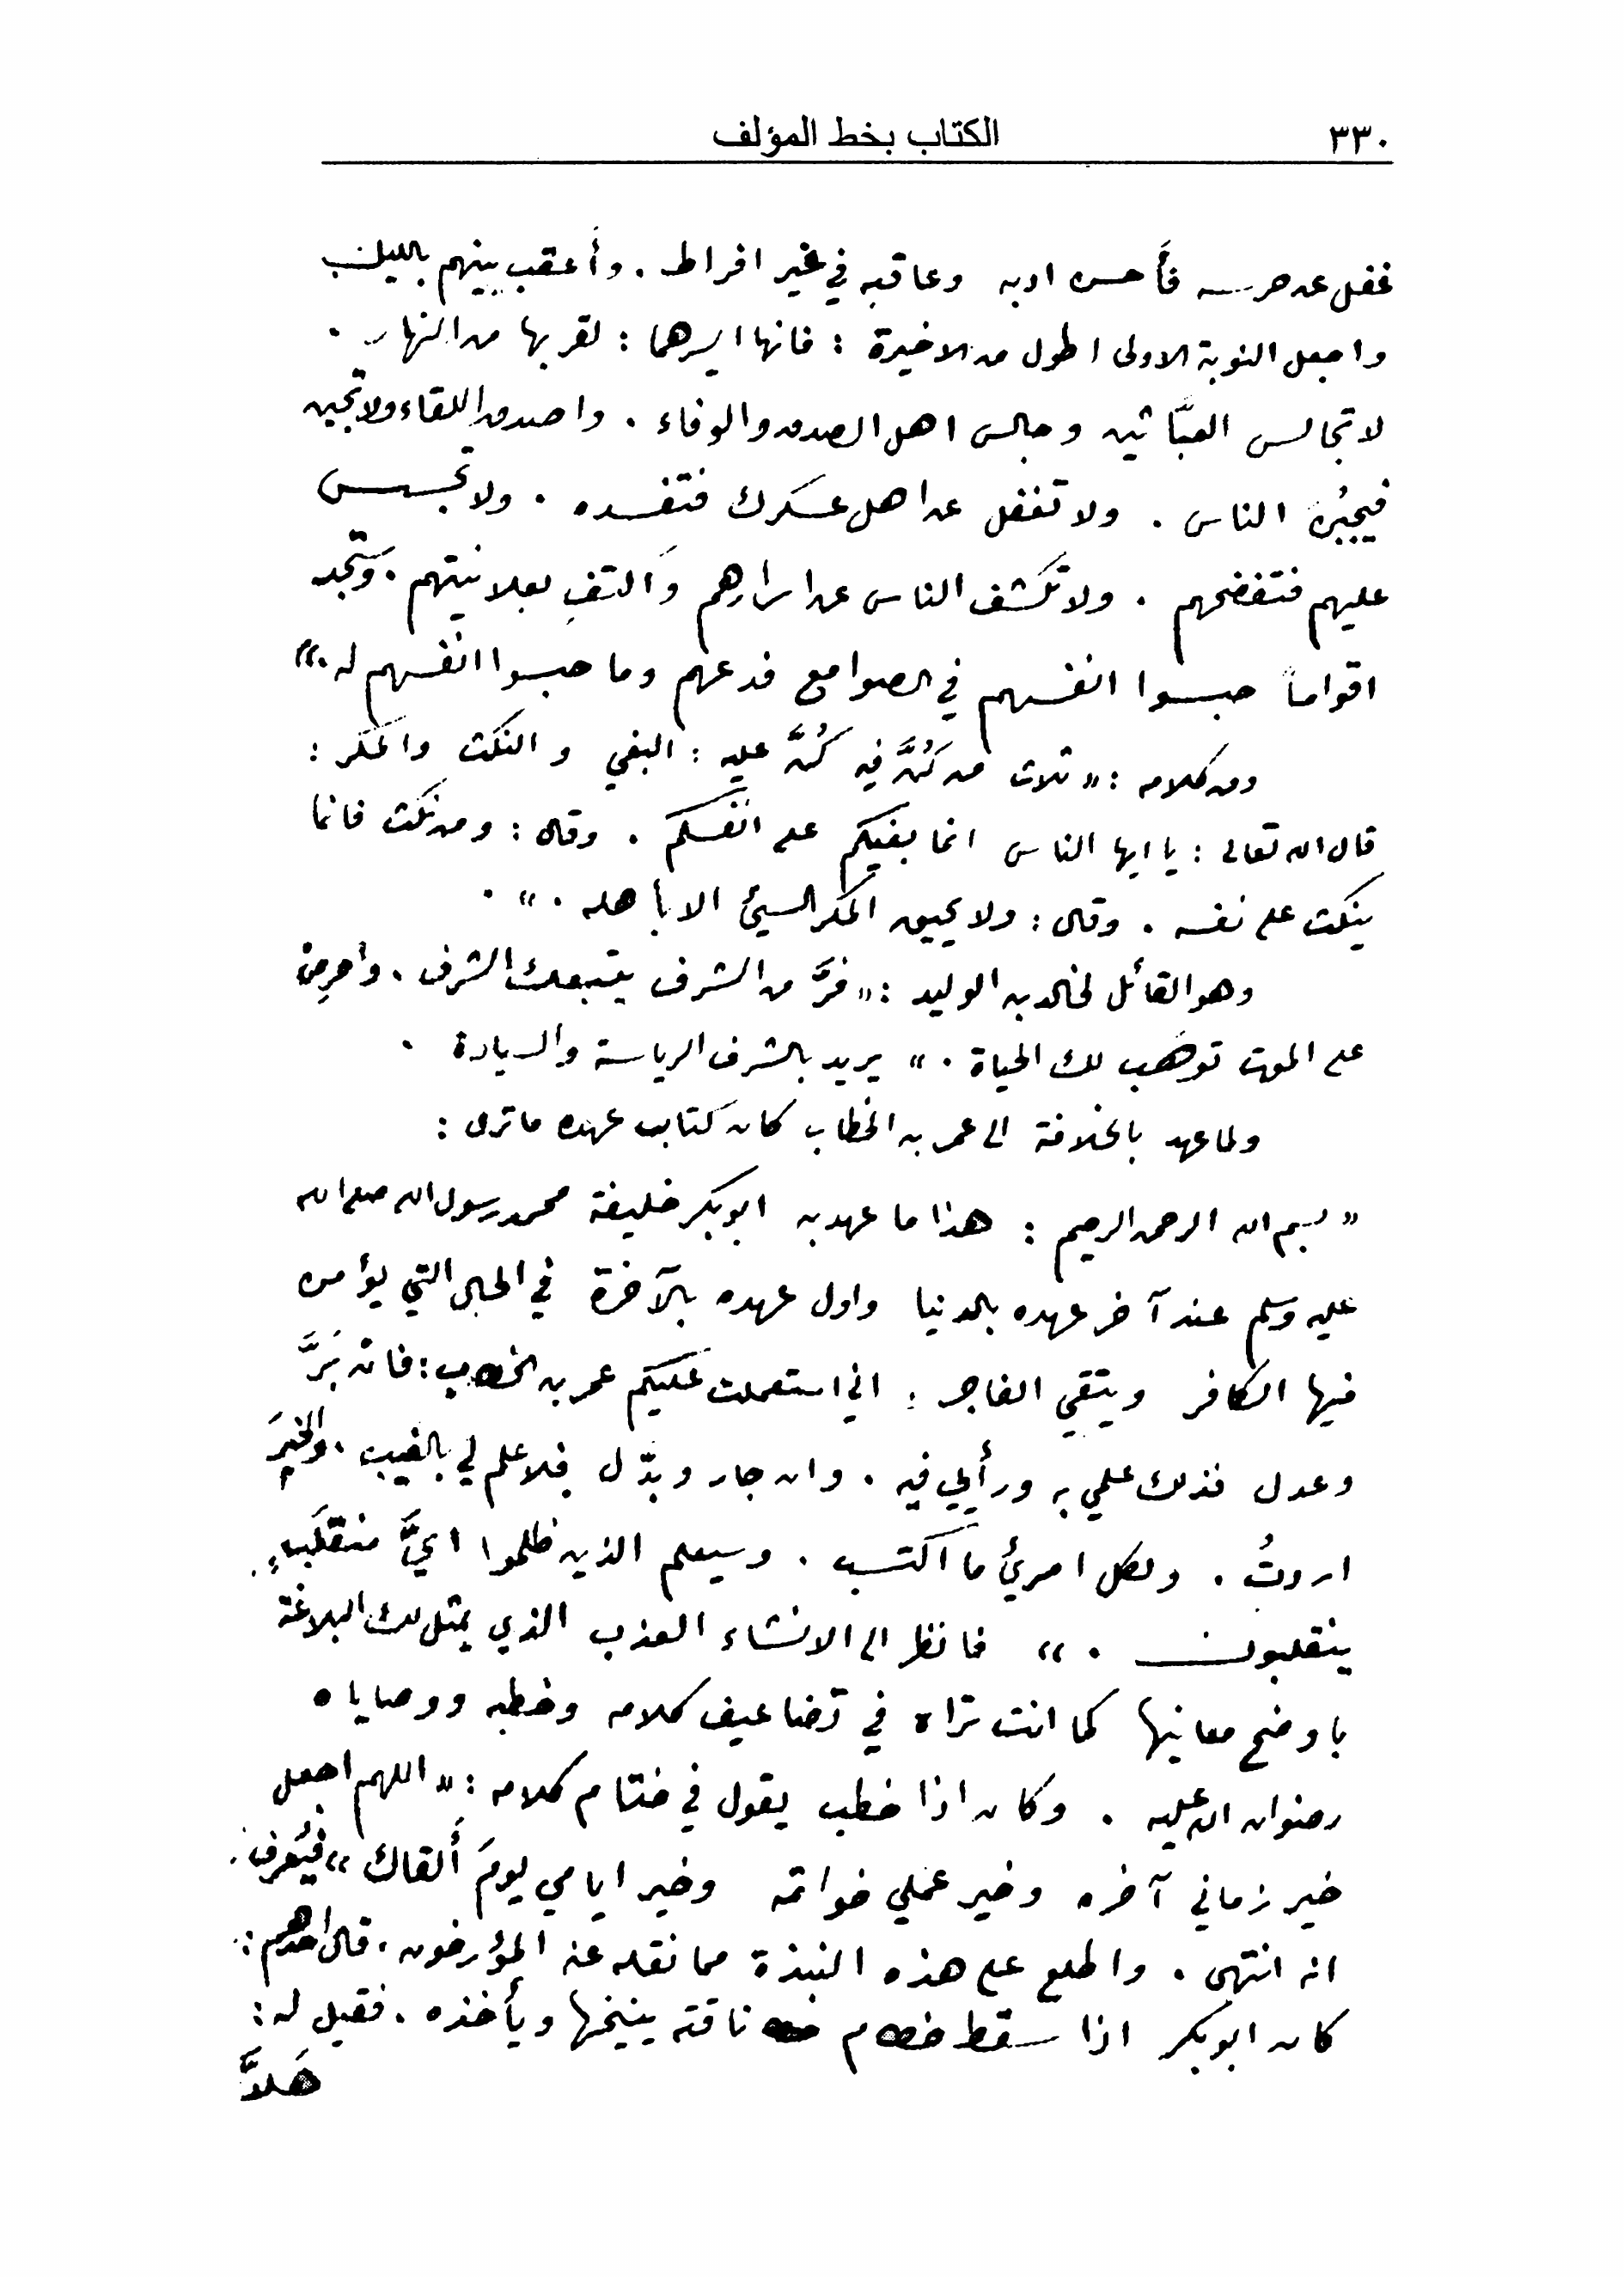 ٣٣٠
الكتاب بخط المؤلف
غفل عن حرسه فأحسن ادبه وعاقبه في غير افراط . وأعقب بينهم بالليل
واجعل النوبة الاولى اطول من الاخيرة : فانها ايسرهما : لقربها من النهار .
لا تجالس العبّاثين وجالس اهل الصدق والوفاء . واصدق اللقاء ولا تجبن
فيجبُن الناس . ولا تغفل عن اهل عسكرك فتفسده . ولا تجسس
عليهم فتفضحهم . ولا تكشف الناس عن اسرارهم واكتفِ بعلانيتهم . وستجد
اقواماً حبسوا انفسهم في الصوامع فدعهم وما حبسوا انفسهم له . »
ومن كلامه : « ثلاث من كُنَّ فيه كُنَّ عليه : البغي والنكث والمكر :
قال الله تعالى : يا ايها الناس انما بغيكم على انفسكم . وقال : ومن نكث فانما
ينكث على نفسه . وقال : ولا يحيق المكر السيئ الا بأهله . » .
وهو القائل لخالد بن الوليد : « فرَّ من الشرف يتبعك الشرف . واحرِص
على الموت توهَب لك الحياة . » يريد بالشرف الرياسة والسيادة .
ولما عهد بالخلافة الى عمر بن الخطاب كان كتاب عهده ما ترى :
« بسم الله الرحمن الرحيم : هذا ما عهد به ابو بكر خليفة محمد رسول الله صلى الله
عليه وسلم عند آخر عهده بالدنيا واول عهده بالآخرة في الحال التي يؤمن
فيها الكافر ويتقي الفاجر : اني استعملت عليكم عمر بن الخطاب : فان بَرَّ
وعدل فذلك علمي به ورأيي فيه . وان جار وبدّل فلا علم لي بالغيب . والخيرَ
اردتُ . ولكل امرئ ما اكتسب . وسيعلم الذين ظلموا ايَّ منقلَبٍ
ينقلبون . » فانظر الى الانشاء العذب الذي يمثل لك البلاغة
باوضح معانيها كما انت تراه في تضاعيف كلامه وخطبه ووصاياه
رضوان الله عليه . وكان اذا خطب يقول في ختام كلامه : « اللهم اجعل
خير زماني آخره وخير عملي خواتمه وخير ايامي يومَ أَلقاك » فيُعرف
انه انتهى . واطلع على هذه النبذة مما نقله عنه المؤرخون . قال احدهم :
كان ابو بكر اذا سقط خطام ناقته ينيخها ويأخذه . فقيل له :
هَلاَّ